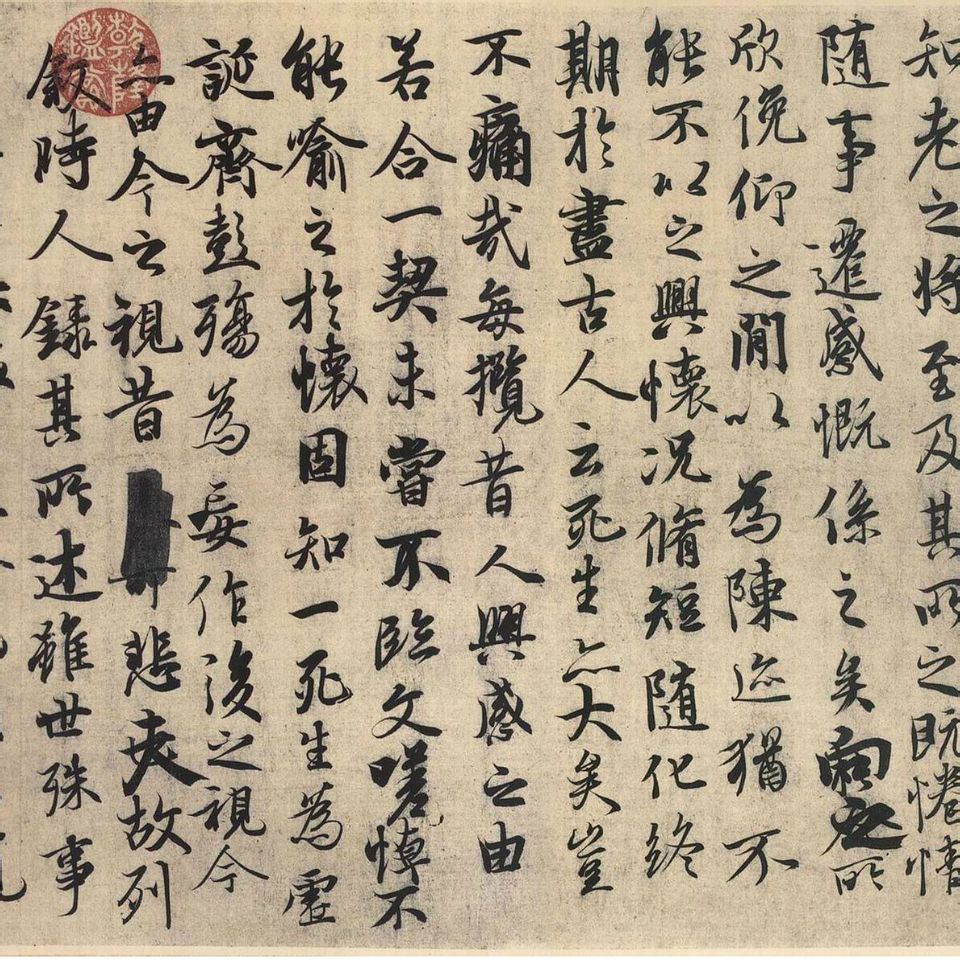 知老之将至及其所之既惓情
随事遷感慨係之矣向之所
欣俛仰之閒以為陳迹猶不
能不以之興懷況脩短随化終
期於盡古人云死生亦大矣豈
不痛哉每攬昔人興感之由
若合一契未嘗不臨文嗟悼不
能喻之於懷固知一死生為虛
誕齊彭殤為妄作後之視今
亦由今之視昔悲夫故列
叙時人錄其所述雖世殊事
乾隆鑑賞